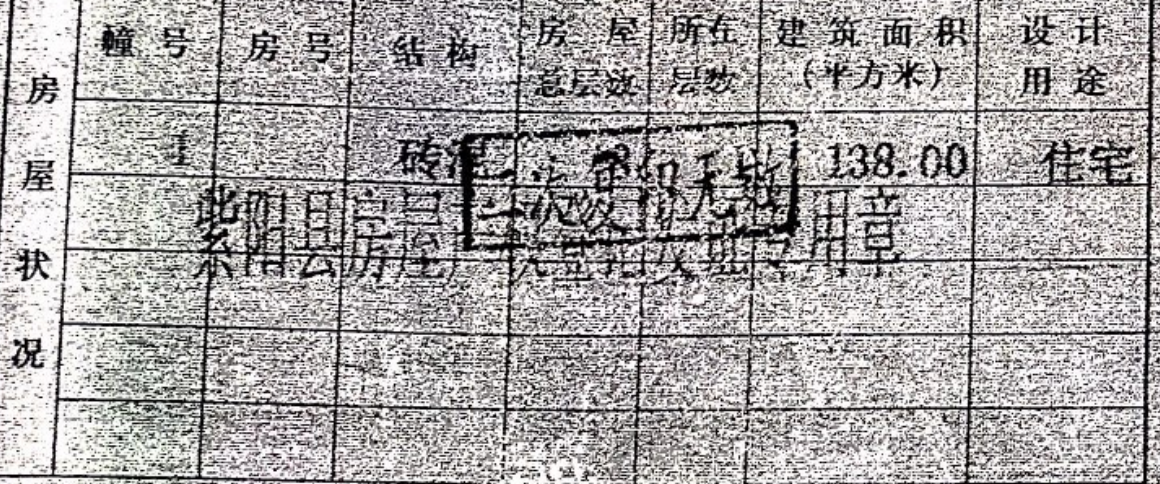 房屋状况
幢号 房号 结构 房屋总层数 所在层数 建筑面积（平方米） 设计用途
1 砖混 138.00 住宅
复印无效
紫阳县房屋产权登记发证专用章